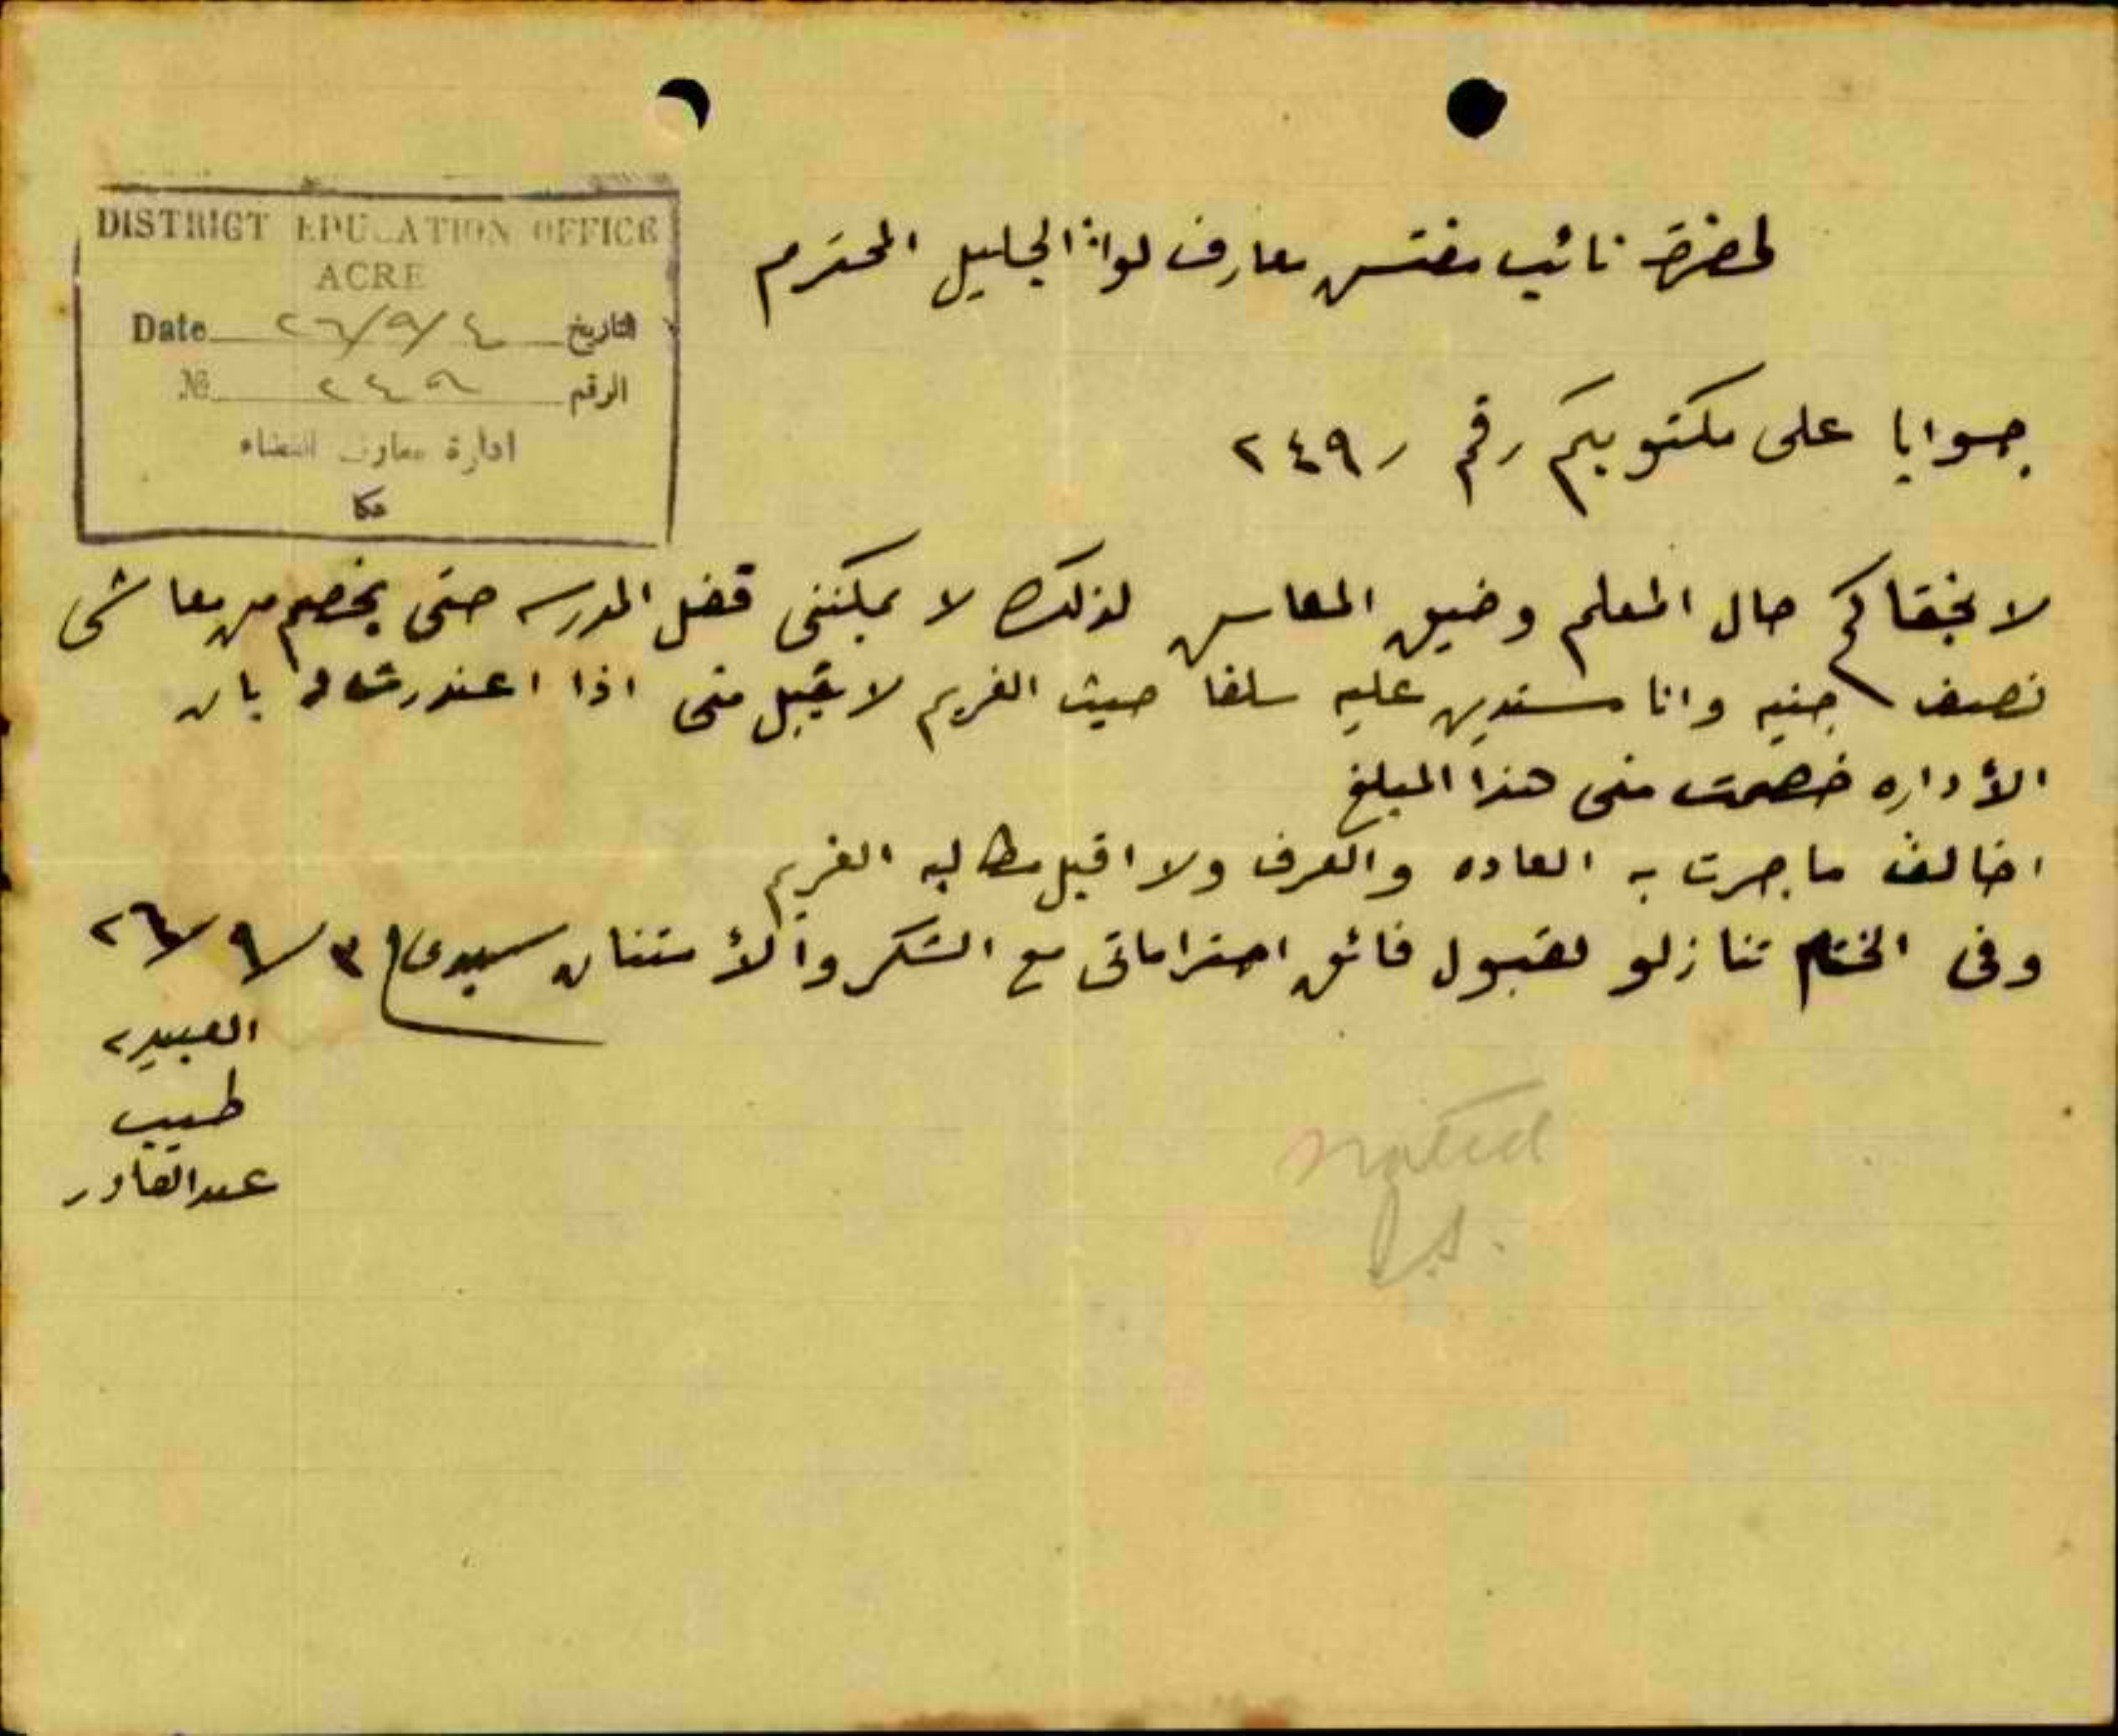 DISTRICT EDUCATION OFFICE
ACRE
Date ٢٦/٩/٤ التاريخ
№ ٢٤٩ الرقم
ادارة معارف القضاء
عكا
لحضرة نائب مفتش معارف لواء الجليل المحترم
جوابا على مكتوبكم رقم ٢٤٩
لا يخفاكم حال المعلم وضيق المعاش لذلك لا يمكنني قفل المدرسه حتى يخصم من معاشي
نصف جنيه وانا مستدين عليه سلفا حيث الغريم لا يقبل مني اذا اعتذرت له بان
الأداره خصمت مني هذا المبلغ
اخالف ما جرت به العاده والعرف ولا اقبل مطالبه الغريم
وفي الختام تنازلو لقبول فائق احتراماتي مع الشكر والأمتنان سيدي ٢٦/٩/٣
طبيب
عبدالقادر
noted